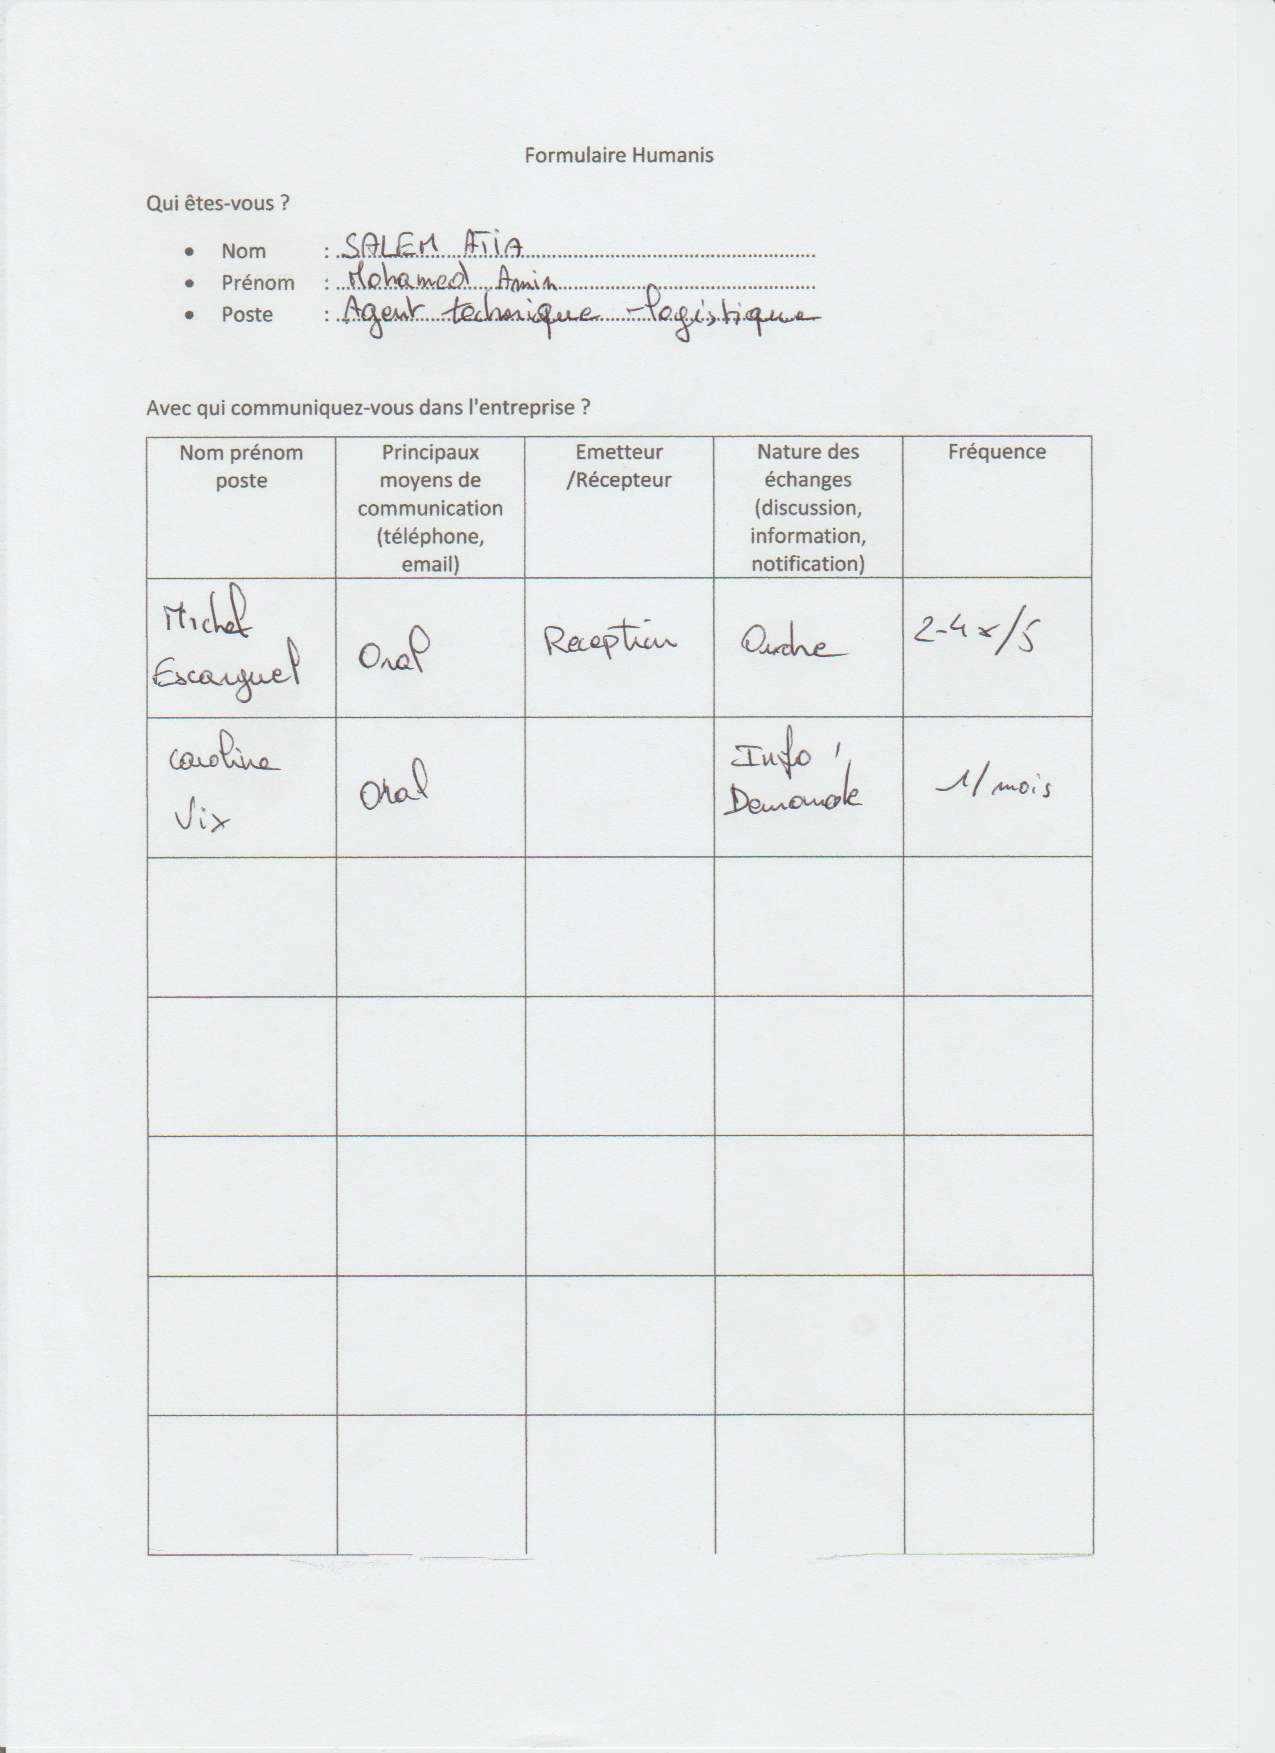 Formulaire Humanis
Qui êtes-vous ?
• Nom : SALEM ATIA
• Prénom : Mohamed Amin
• Poste : Agent technique - logistique
Avec qui communiquez-vous dans l'entreprise ?
Nom prénom
poste
Principaux
moyens de
communication
(téléphone,
email)
Emetteur
/Récepteur
Nature des
échanges
(discussion,
information,
notification)
Fréquence
Michel
Escarguel
Oral
Reception
Ordre
2-4x/5
Caroline
Vix
Oral
Info,
Demande
1/mois